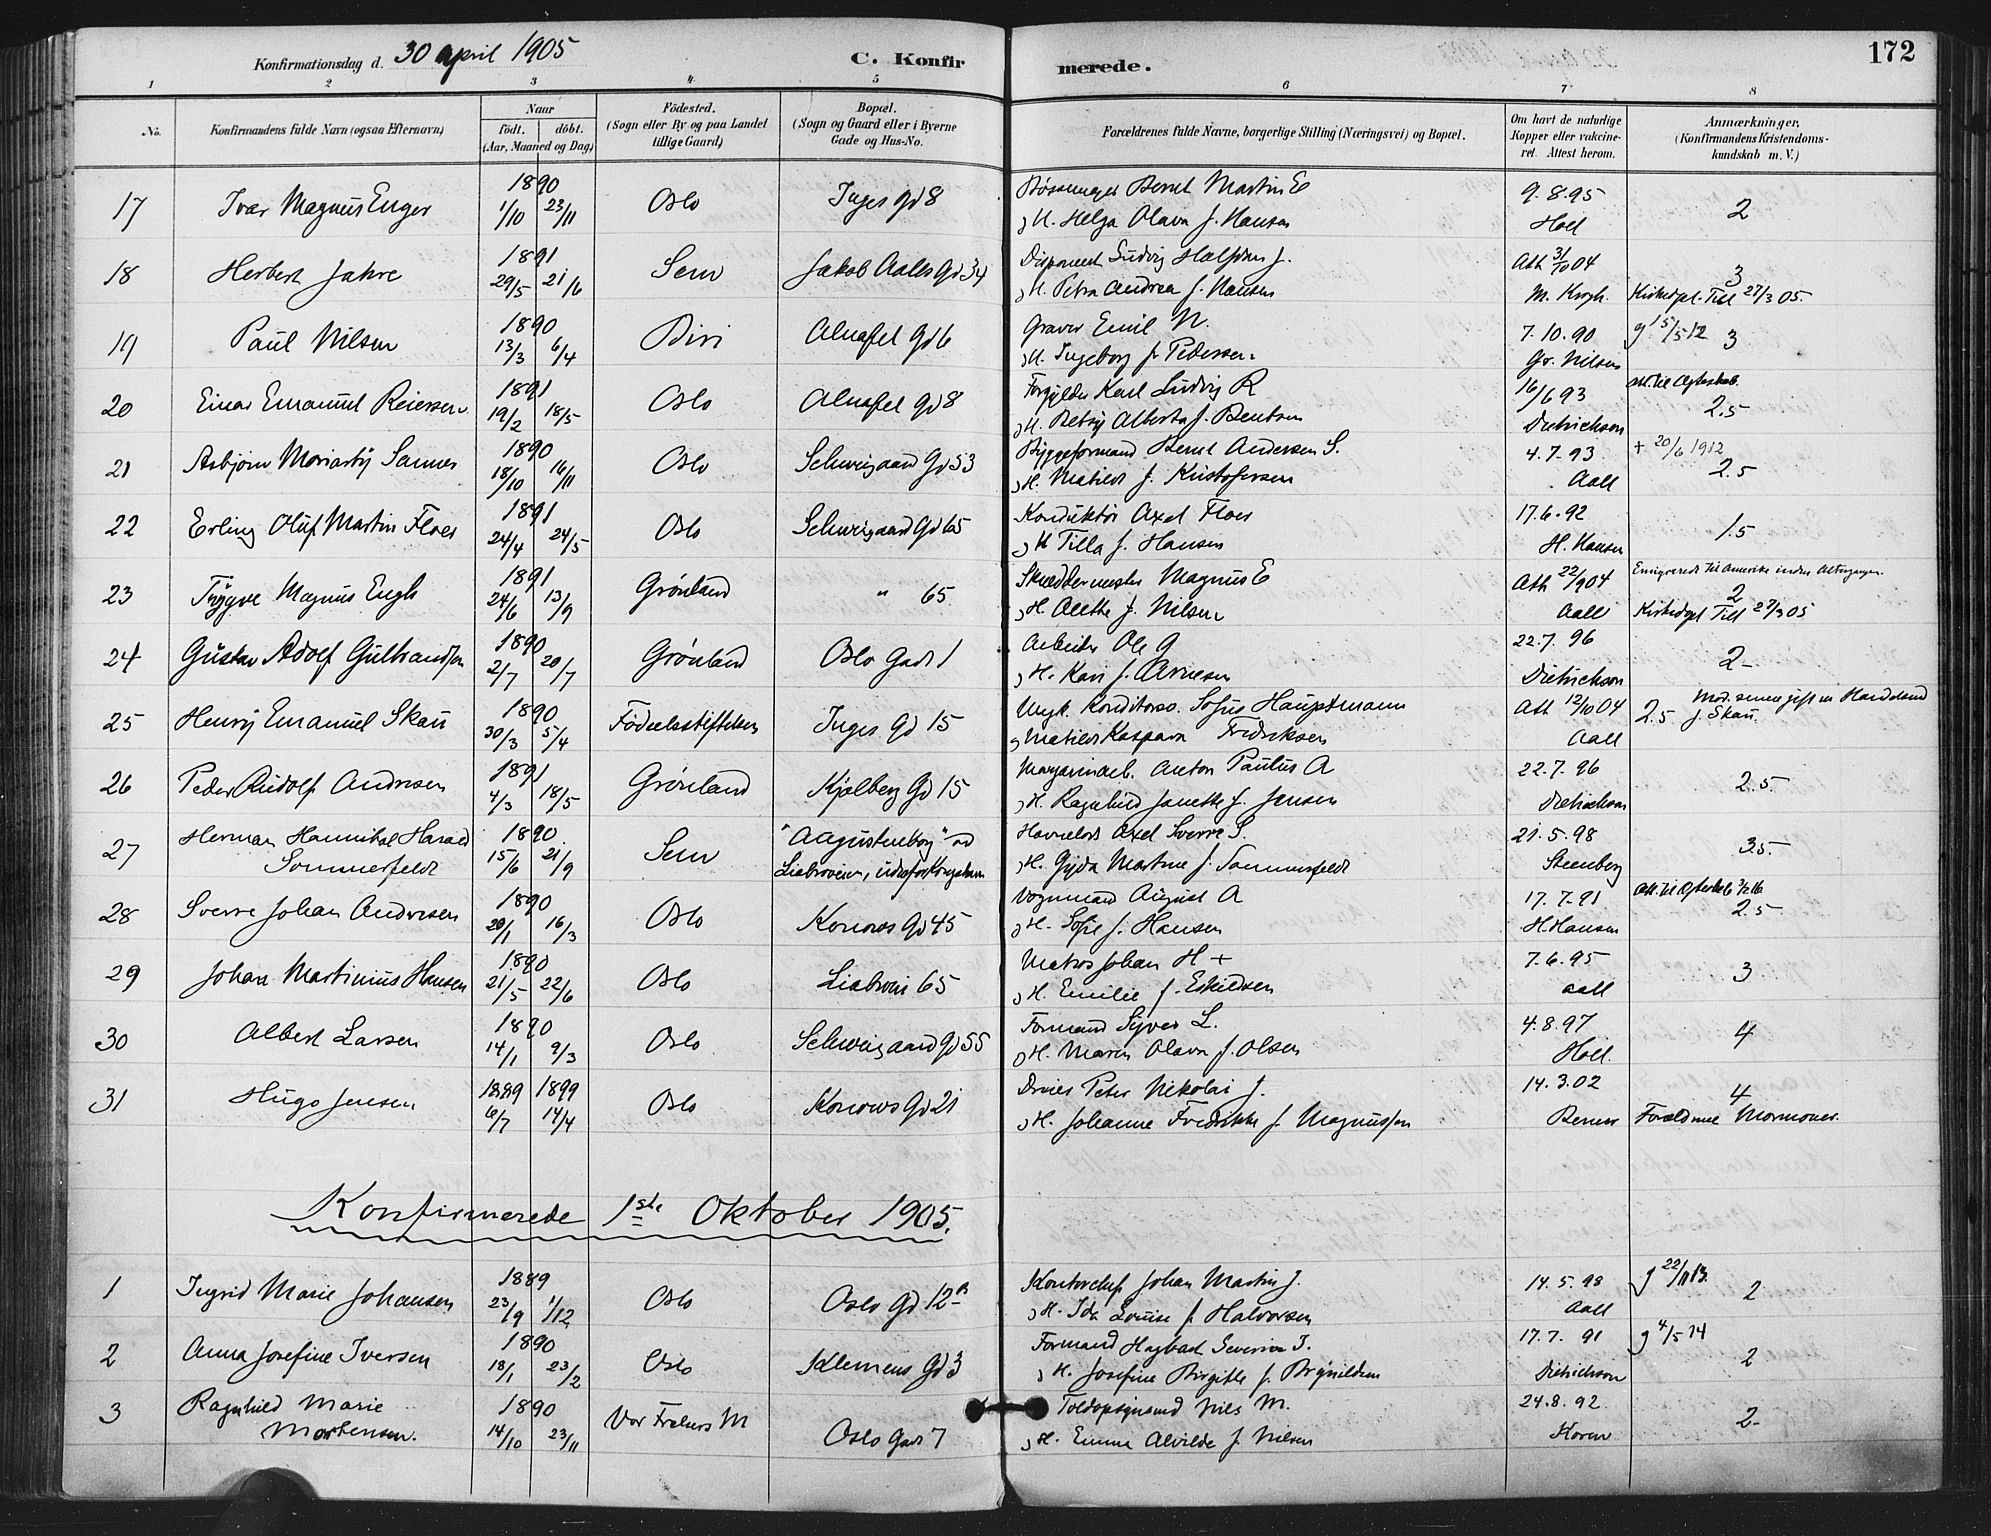 Konfirmationsdag d. 30 april 1905
C. Konfirmerede.
172
1 2 3 4 5 6 7 8
No.
Konfirmandens fulde Navn (ogsaa Efternavn)
Naar
födt. döbt.
(Aar, Maaned og Dag)
Födested.
(Sogn eller By og paa Landet
tillige Gaard)
Bopæl.
(Sogn og Gaard eller i Byerne
Gade og Hus-No.
Forældrenes fulde Navne, borgerlige Stilling (Næringsvei) og Bopæl.
Om havt de naturlige
Kopper eller vakcine-
ret. Attest herom.
Anmærkninger,
(Konfirmandens Kristendoms-
kundskab m. V.)
1890
17 Ivar Magnus Enger 1/10 23/11 Oslo Inges Gd 8
Bernt Martin E
H. Helga Olava f. Hansen
9.8.95
Holl
2
1891
18 Herbert Jahre 29/5 21/6 Sem Jakob Aalls Gd 34
Disponent Ludvig Halfdan J.
H. Petra Andrea f. Hansen
Att 3/10 04
M. Krogh.
3
Kirkedpt. Till 27/3 05.
1890
19 Paul Nilsen 13/3 6/4 Biri Alnafet Gd 6
Graver Emil N.
H. Ingeborg f. Pedersen
7.10.90
Gr. Nilsen
g 15/5 12 3
1891
20 Einar Emanuel Reiersen 19/2 18/5 Oslo Alnafet Gd 8
Forgylder Karl Ludvig R
H. Betsy Alberta f. Bentsen
16/6 93
Dietrichson
att. til Ægteskab.
2.5
1890
21 Asbjørn Moriarty Sannes 18/10 16/11 Oslo Schweigaard Gd 53
Byggeformand Bernt Andersen S.
H. Matilde f. Kristofersen
4.7.93
Aall
+ 20/6 1912
2.5
1891
22 Erling Oluf Martin Floer 24/4 24/5 Oslo Schweigaard Gd 65
Konduktør Axel Floer
H Tilla f. Hansen
17.6.92
H. Hansen
1.5
1891
23 Trygve Magnus Engh 24/6 13/9 Grönland " 65
Skræddermester Magnus E
H. Alette f. Nilsen
Att 22/9 04
Aall
Emigrerede til Amerika inden Altergangen.
2
Kirkedpt Till 27/3 05
1890
24 Gustav Adolf Gulbrandsen 2/7 20/7 Grönland Oslo Gade 1
Arbeider Ole G
H. Kari f. Arnesen
22.7.96
Dietrichson
2-
1890
25 Henry Emanuel Skau 30/3 5/4 Födselsstiftelsen Inges Gd 15
Ungk. Konditorsv. Sofus Hauptmann
Matilde Kaspara Fredriksen
Att 12/10 04
Aall
2.5 Mod. senere gift m Handelsmd
J. Skau.
1891
26 Peder Rudolf Andresen 4/3 18/5 Grönland Kjølberg Gd 15
Margarinarb. Anton Paulus A
H. Ragnhild Janette f. Jensen
22.7.96
Dietrichson
2.5.
1890
27 Herman Hannibal Harald
Sommerfeldt 15/6 21/9 Sem "Augustenborg" ved
Liabroveien,
Havnelods Axel Sverre S.
H. Gyda Martine f. Sommerfeldt
21.5.98
Steenberg
3.5.
1890
28 Sverre Johan Andresen 20/1 16/3 Oslo Konows Gd 45
Vognmand August A
H. Sofie f. Hansen
17.7.91
H Hansen
Att. til Ægteskab
2.5
1890
29 Johan Martinius Hansen 21/5 22/6 Oslo Liabrovei 65
Matros Johan H +
H. Emilie f. Eskildsen
7.6.95
Aall
3
1890
30 Albert Larsen 14/1 9/3 Oslo Schweigaard Gd 55
Formand Syver L.
H. Maren Olava f. Olsen
4.8.97
Holl.
4
1889 1899
31 Hugo Jensen 6/7 14/4 Oslo Konows Gd 21
Dreier Peter Nikolai J.
H. Johanne Fredrikke f. Magnussen
14.3.02
Berner
4
Forældrene Mormoner.
Konfirmerede 1ste Oktober 1905.
1889
1 Ingrid Marie Johansen 23/9 1/12 Oslo Oslo Gd 12 B
Kontorchef Johan Martin J.
H. Ida Louise f. Halvorsen
14.5.98
Aall
g 22/11 13.
2
1890
2 Anna Josefine Iversen 18/1 23/2 Oslo Klemens Gd 3
Formand Hagbart Severin I.
H. Josefine Birgitte f. Brynildsen
17.7.91
Dietrichson
g 4/5 14
2
1890
3 Ragnhild Marie
Mortensen. 14/10 23/11 Vor Frelsers M Oslo Gade 7
Toldopsynsmd Nils M.
H. Emma Alvilde f. Nilsen
24.8.92
Koren
2-